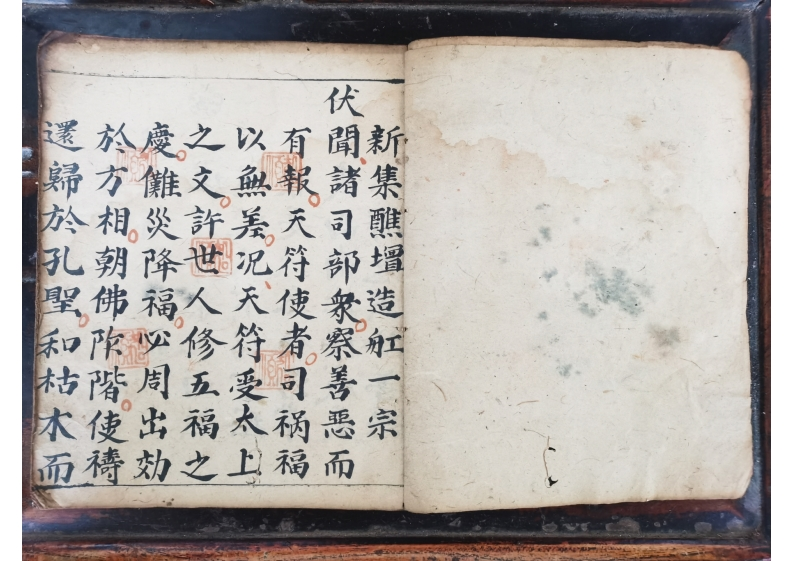 新集醮壇造舡一宗
伏聞諸司部衆察善惡而
有報天符使者司禍福
以無差况天符受太上
之文許世人修五福之
慶儺災降福必周出効
於方相朝佛阼階使禱
還歸於孔聖和枯木而